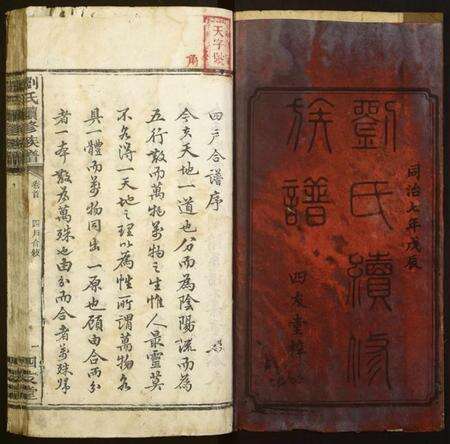 同治七年戊辰
劉氏續修
族譜
四友堂梓
天字號
四戶合譜序
今夫天地一道也分而為陰陽流而為
五行散而萬物萬物之生惟人最靈莫
不各得一天地之理以為性所謂萬物各
具一體而萬物同出一原也顧由合而分
者一本散為萬殊也由分而合者萬殊歸
劉氏續修族譜
卷首
四戶合敘
一
四友堂